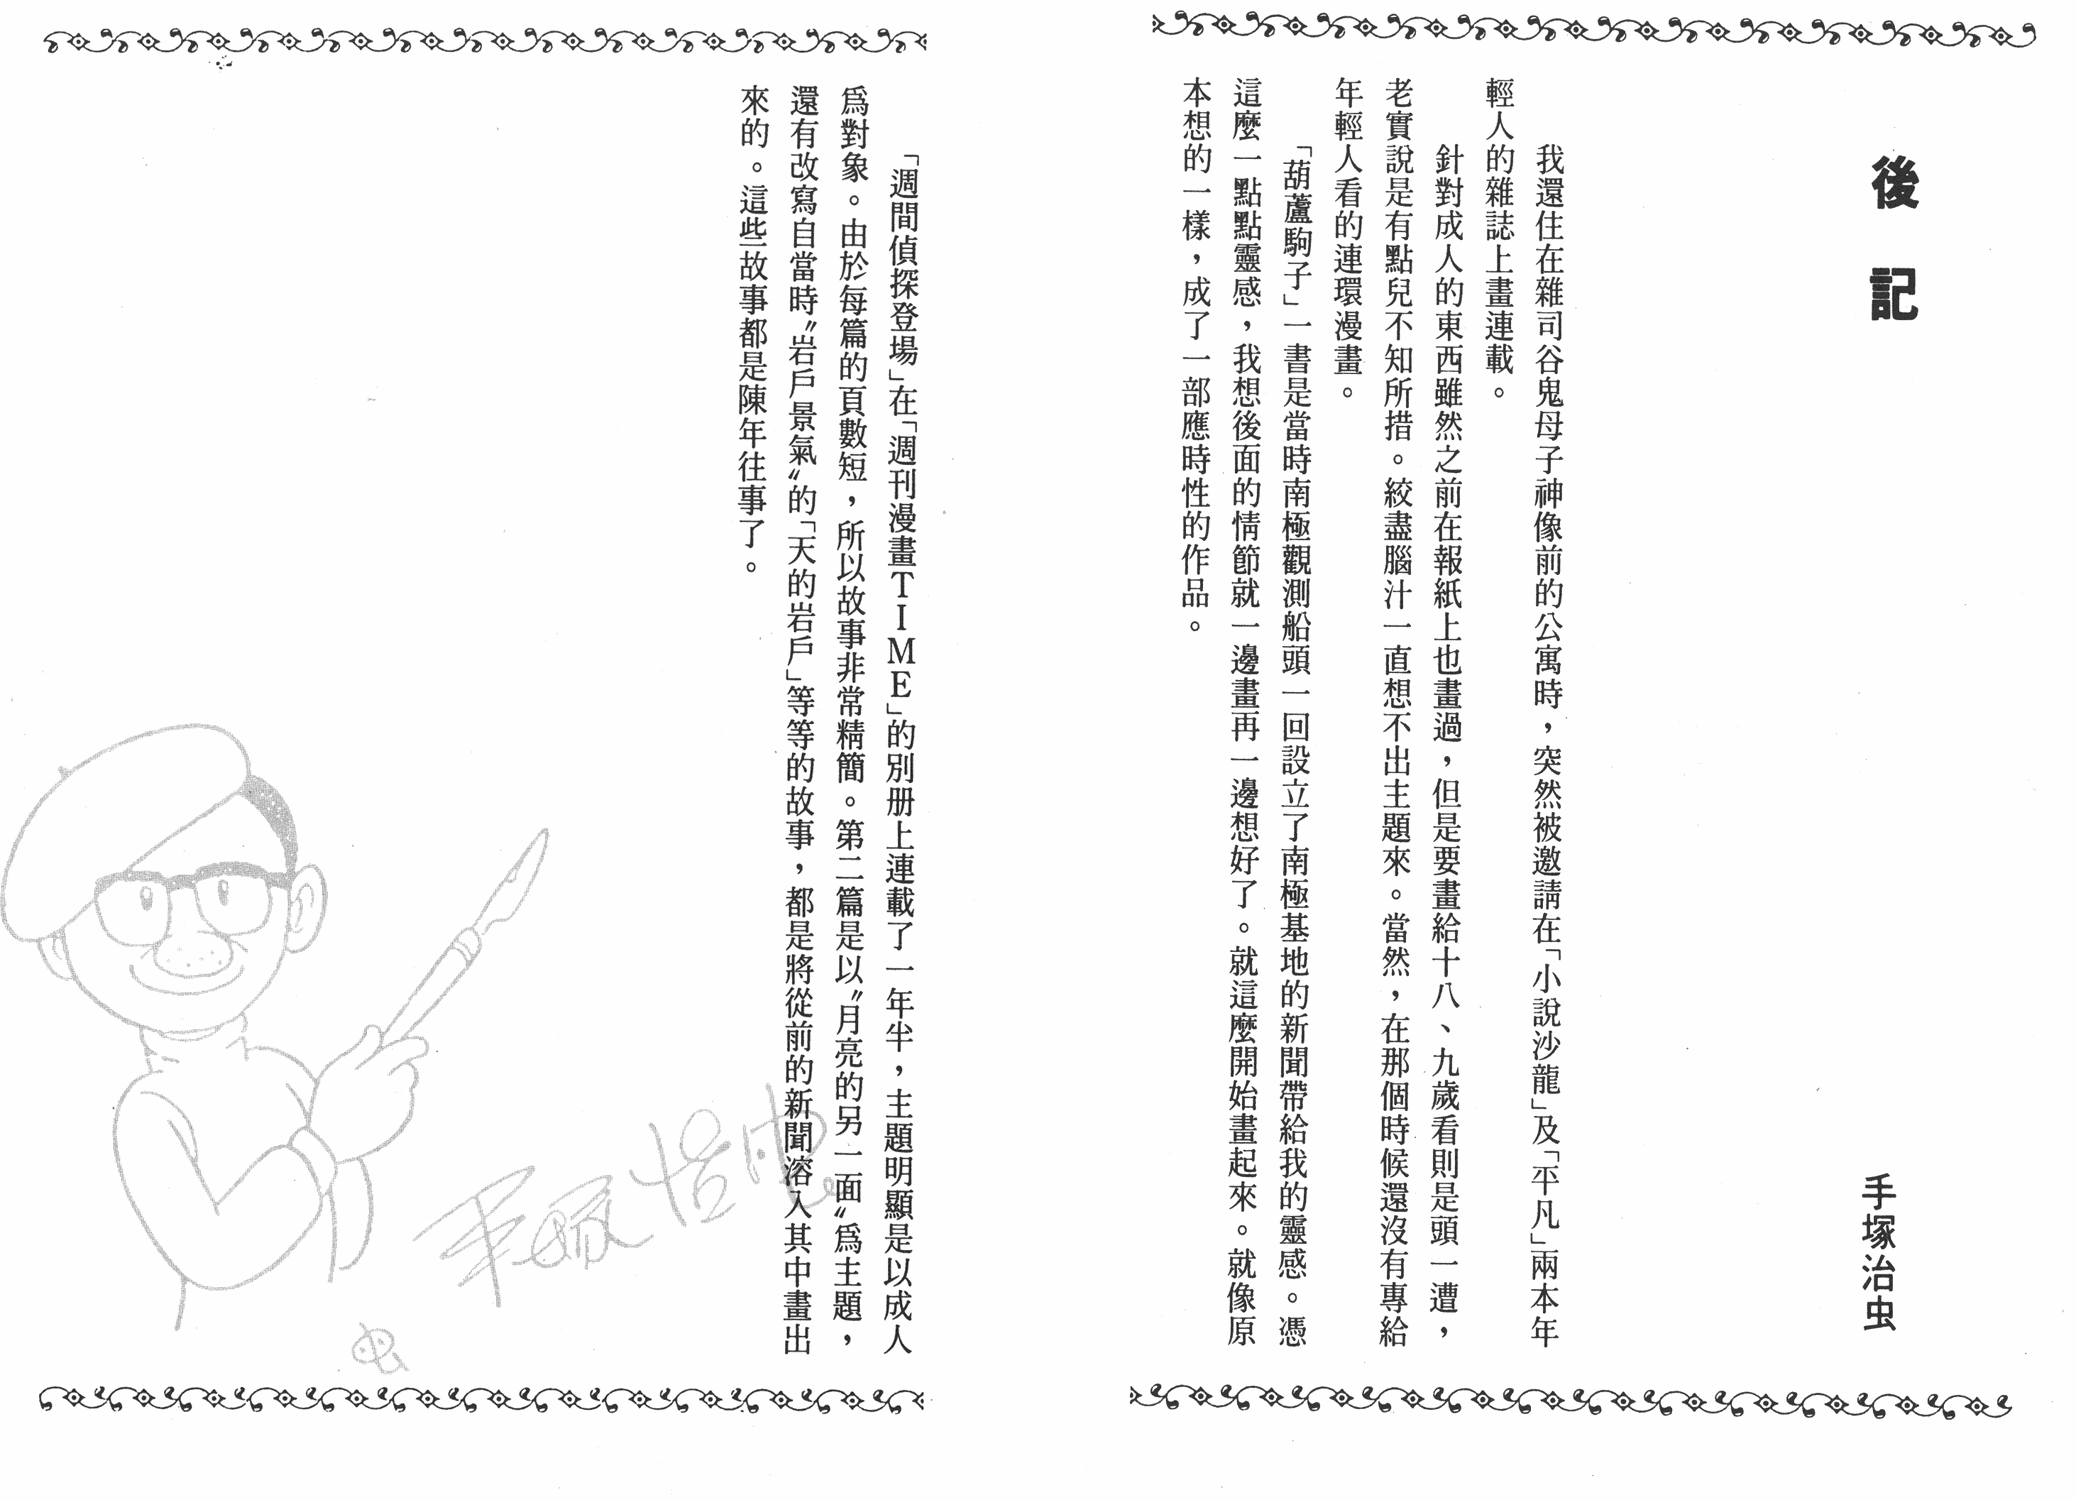 後記
手塚治虫
我還住在雜司谷鬼母子神像前的公寓時，突然被邀請在「小說沙龍」及「平凡」兩本年
輕人的雜誌上畫連載。
針對成人的東西雖然之前在報紙上也畫過，但是要畫給十八、九歲看則是頭一遭，
老實說是有點兒不知所措。絞盡腦汁一直想不出主題來。當然，在那個時候還沒有專給
年輕人看的連環漫畫。
「葫蘆駒子」一書是當時南極觀測船頭一回設立了南極基地的新聞帶給我的靈感。憑
這麼一點點靈感，我想後面的情節就一邊畫再一邊想好了。就這麼開始畫起來。就像原
本想的一樣，成了一部應時性的作品。
「週間偵探登場」在「週刊漫畫TIME」的別册上連載了一年半，主題明顯是以成人
爲對象。由於每篇的頁數短，所以故事非常精簡。第二篇是以〝月亮的另一面〞爲主題，
還有改寫自當時〝岩戶景氣〞的「天的岩戶」等等的故事，都是將從前的新聞溶入其中畫出
來的。這些故事都是陳年往事了。
手塚治虫